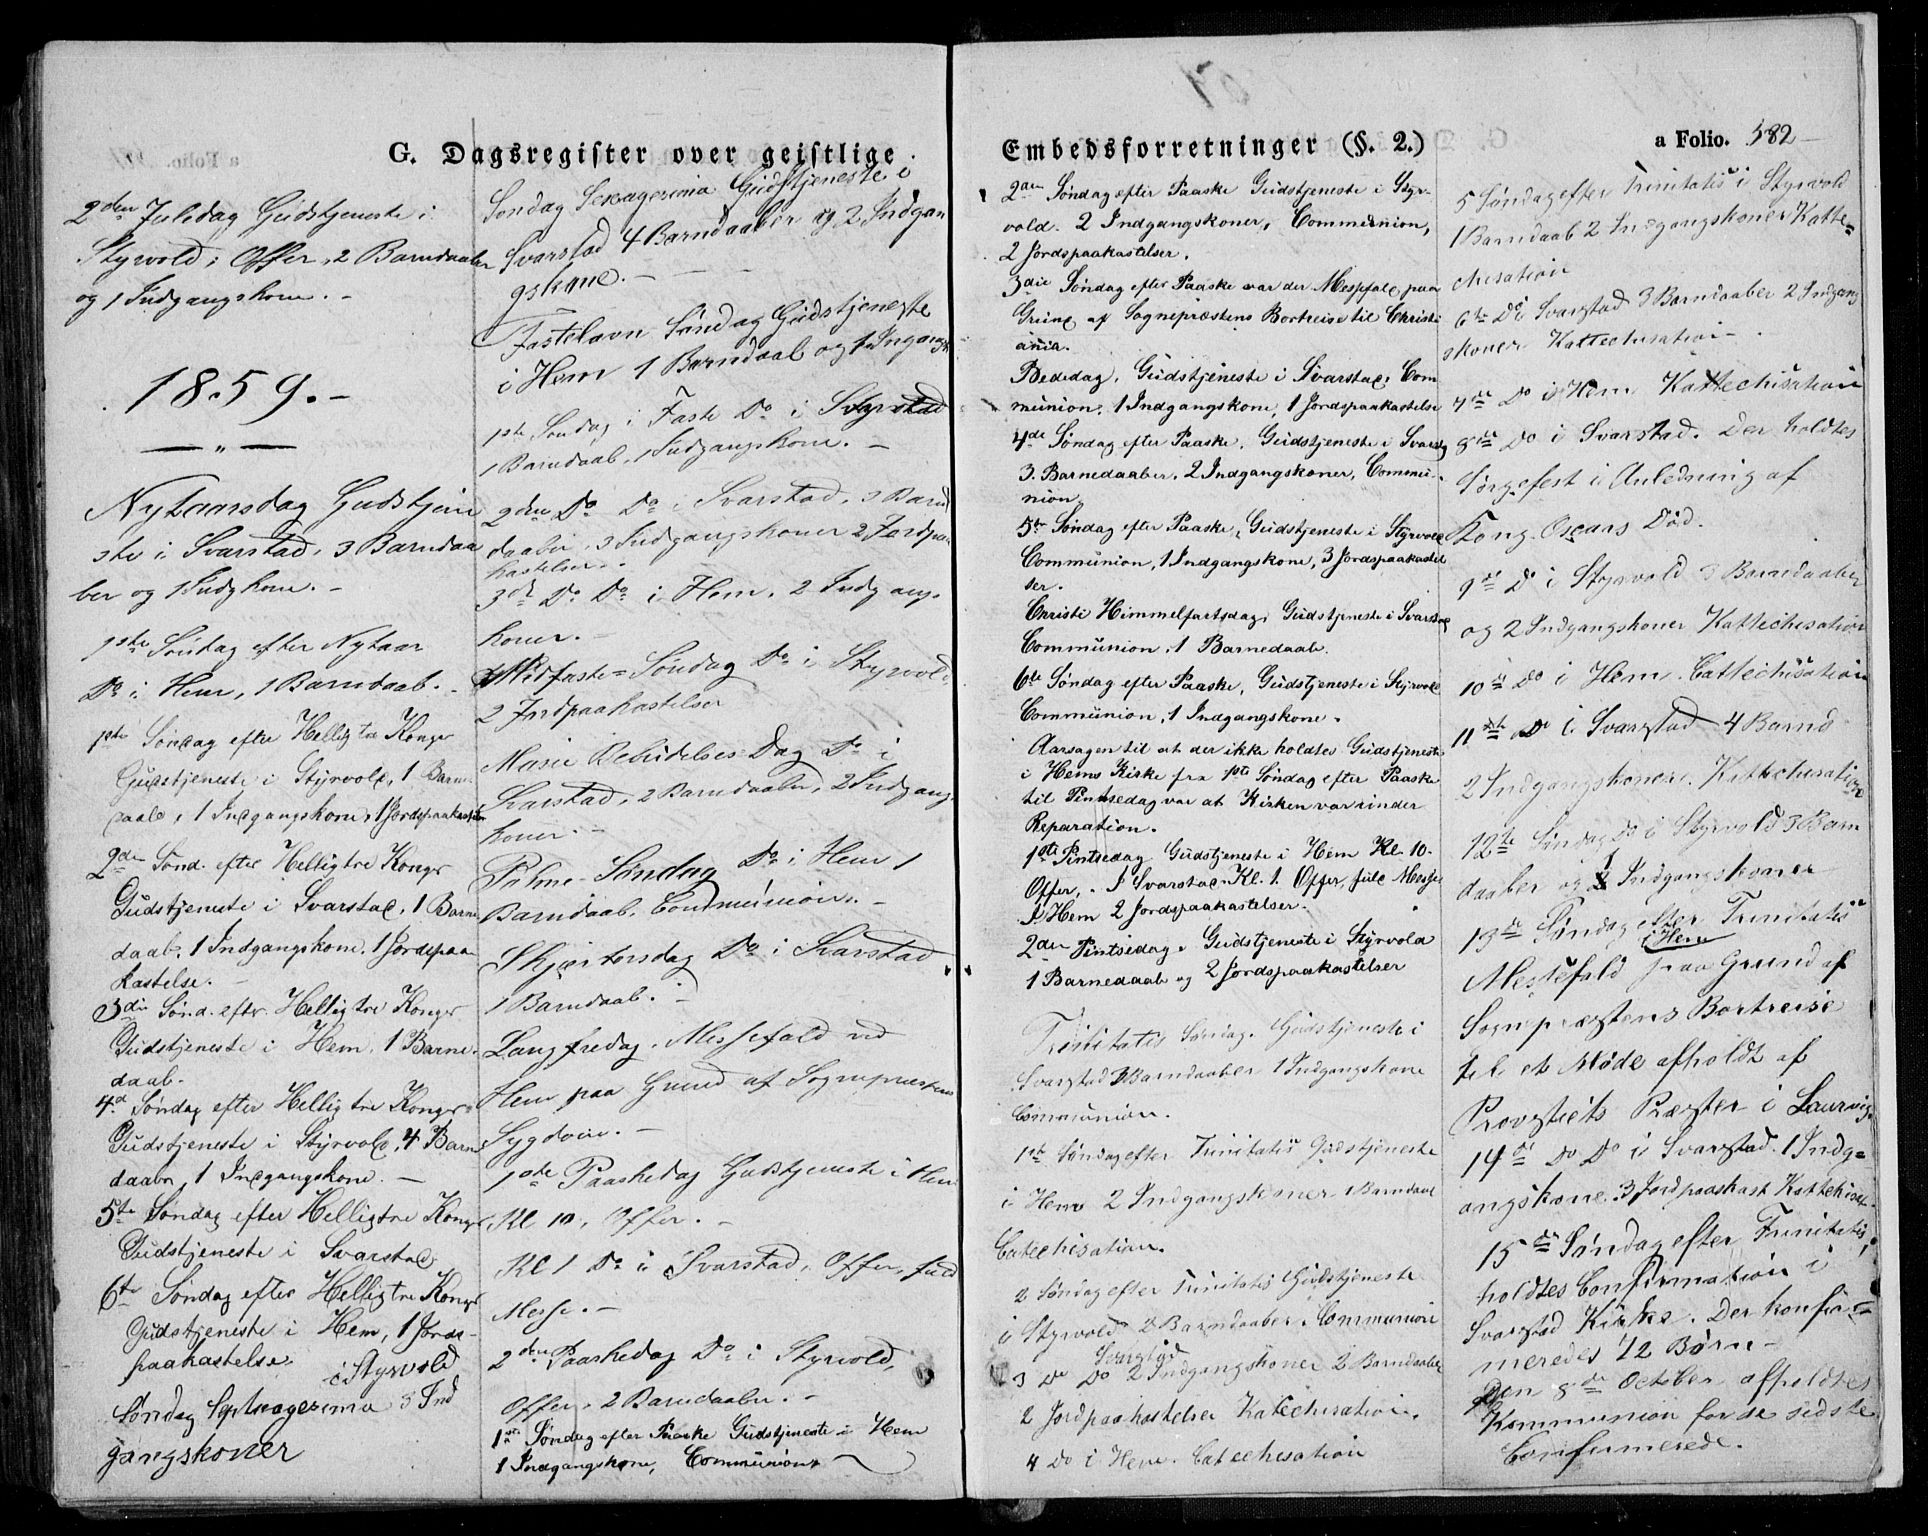 G. Dagsregister over geistlige
2den Juledag Gudstjeneste i
Styrvold, Offer, 2 Barndaaber
og 1 Indgangskone. -
1859. -
Nytaarsdag Gudstjene
ste i Svarstad, 3 Barndaa
ber og 1 Indgkone. -
1ste Søndag efter Nytaar
Do i Hem, 1 Barndaab. -
1ste Søndag efter Helligtre Konger
Gudstjeneste i Styrvold, 1 Barne
daab, 1 Indgangskone, 1 Jordspaakastelse
2den Sønd. efter Helligtre Konger
Gudstjeneste i Svarstad, 1 Barne
daab, 1 Indgangskone, 1 Jordspaa
kastelse. -
3die Sønd. efter Helligtre Konger
Gudstjeneste i Hem, 1 Barne-
daab.
4de Søndag efter Helligtre Konger
Gudstjeneste i Styrvold, 4 Barne
daab, 1 Indgangskone. -
5te Søndag efter Helligtre Konger
Gudstjeneste i Svarstad
6te Søndag efter Helligtre Konger
Gudstjeneste i Hem, 1 Jords-
paakastelse.
i Styrvold
Søndag Septuagesima 3 Ind
gangskoner
Søndag Sexagesima Gudstjeneste i
Svarstad 4 Barndaaber og 2 Indgan
gskone. -
Fastelavn Søndag Gudstjeneste
i Hem 1 Barndaab og 1 Ingangsk
1ste Søndag i Faste Do i Styrvold
1 Barndaab, 1 Indgangskone. -
2den Do Do i Svarstad, 3 Barn
daaber, 3 Indgangskoner 2 Jordpaa
kastelser.
3die Do Do i Hem, 2 Indgangs
koner. -
Midfaste=Søndag Do i Styrvold,
2 Jordpaakastelser
Marie Bebudelses Dag Do i
Svarstad, 2 Barndaaber, 2 Indgang
koner. -
Palme-Søndag Do i Hem 1
Barndaab, Communion. -
Skjertorsdag Do i Svarstad
1 Barndaab. -
Langfredag, Messefald ved
Hem paa Grund af Sognepræstens
Sygdom. -
1ste Paaskedag Gudstjeneste i Hem
Kl 10, Offer. -
Kl 1 Do i Svarstad, Offer, fuld
Messe. -
2den Paaskedag Do i Styrvold,
Offer, 2 Barndaaber. -
1ste Søndag efter Paaske Gudstjeneste i Hem
1 Indgangskone, Communion.
Embedsforretninger (§. 2.)
a Folio. 582
2den Søndag efter Paaske Gudstjeneste i Styr-
vold. 2 Indgangskoner, Communion,
2 Jordspaakastelser.
3die Søndag efter Paaske var der Messefald paa
Grund af Sognepræstens Bortreise til Christi
ania.
Bededag, Gudstjeneste i Svarstad, Com
munion, 1 Indgangskone, 1 Jordspaakastelse
4de Søndag efter Paaske, Gudstjeneste i Svarstad
3. Barnedaaber, 2 Indgangskoner, Commu-
nion,
5te Søndag efter Paaske, Gudstjeneste i Styrvold
Communion, 1 Indgangskone, 3 Jordspaakastel
ser.
Christi Himmelfartsdag, Gudstjeneste i Svarstad
Communion, 1 Barnedaab.
6te Søndag efter Paaske, Gudstjeneste i Styrvold
Communion, 1 Indgangskone.
Aarsagen til at der ikke holdtes Gudstjeneste
i Hems Kirke fra 1ste Søndag efter Paaske
til Pintsedag var at Kirken var under
Reparation.
1ste Pintsedag Gudstjeneste i Hem Kl. 10.
Offer, - I Svarstad Kl. 1. Offer, fuld Messe
I Hem 2 Jordspaakastelser.
2den Pintsedag, Gudstjeneste i Styrvold
1 Barnedaab og 2 Jordspaakastelser
Trinitatis Søndag. Gudstjeneste i
Svarstad 3 Barndaaber 1 Indgangskone
Communion.
1ste Søndag efter Trinitatis Gudstjeneste
i Hem 2 Indgangskoner 1 Barndaab
Catechisation.
2 Søndag efter Trinitatis Gudstjeneste
i Styrvold 2 Barndaaber, Communion
Svarstad
3 Do Do 2 Indgangskoner 2 Barndaaber
2 Jordpaakastelser Katechisation.
4 Do i Hem. Catechisation
5 Søndag efter Trinitatis i Styrvold
1 Barndaab 2 Indgangskoner Katte=
chisation
6te Do i Svarstad 3 Barndaaber 2 Indgang
skoner Kattechisation -
7de Do i Hem Kattechisation
8de Do i Svarstad. Der holdtes
Sørgefest i Anledning af
Kong Oscars Død.
9de Do i Styrvold 3 Barndaaber
og 2 Indgangskoner Kattechisation
10de Do i Hem. Cattechisation
11te Do i Svarstad 4 Barnd
2 Indgangskoner, Kattechisation
12te Søndag Do i Styrvold 3 Barn
daaber og 1 Indgangskoner
13de Søndag efter Trinitatis
i Hem
Messefald paa Grund af
Sognepræstens Bortreise
til et Møde afholdt af
Provstiets Præster i Laurvig.
14de Do Do i Svarstad. 1 Indg=
angskone. 3 Jordpaakast Kattechisat
15de Søndag efter Trinitatis,
holdtes Confirmation i
Svarstad Kirke. Der konfir=
meredes 42 Børn -
Den 8de October afholdtes
Kommunion for de sidste
Confirmerede.